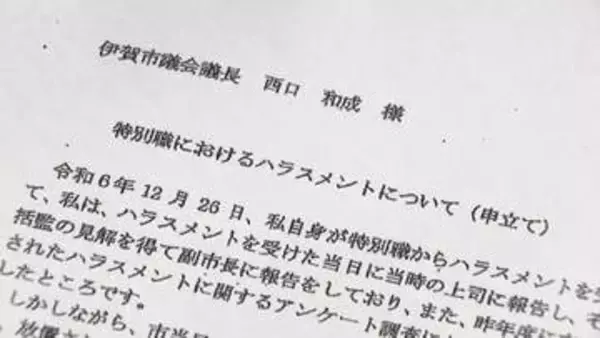 伊賀市議会議長 西口 和成 様
特別職におけるハラスメントについて（申立て）
令和６年１２月２６日、私自身が特別職からハラスメントを
て、私は、ハラスメントを受けた当日に当時の上司に報告し、そ
括監の見解を得て副市長に報告をしており、また、昨年度に
されたハラスメントに関するアンケート調査に
したところです。
しかしながら、市当局
、放置さ